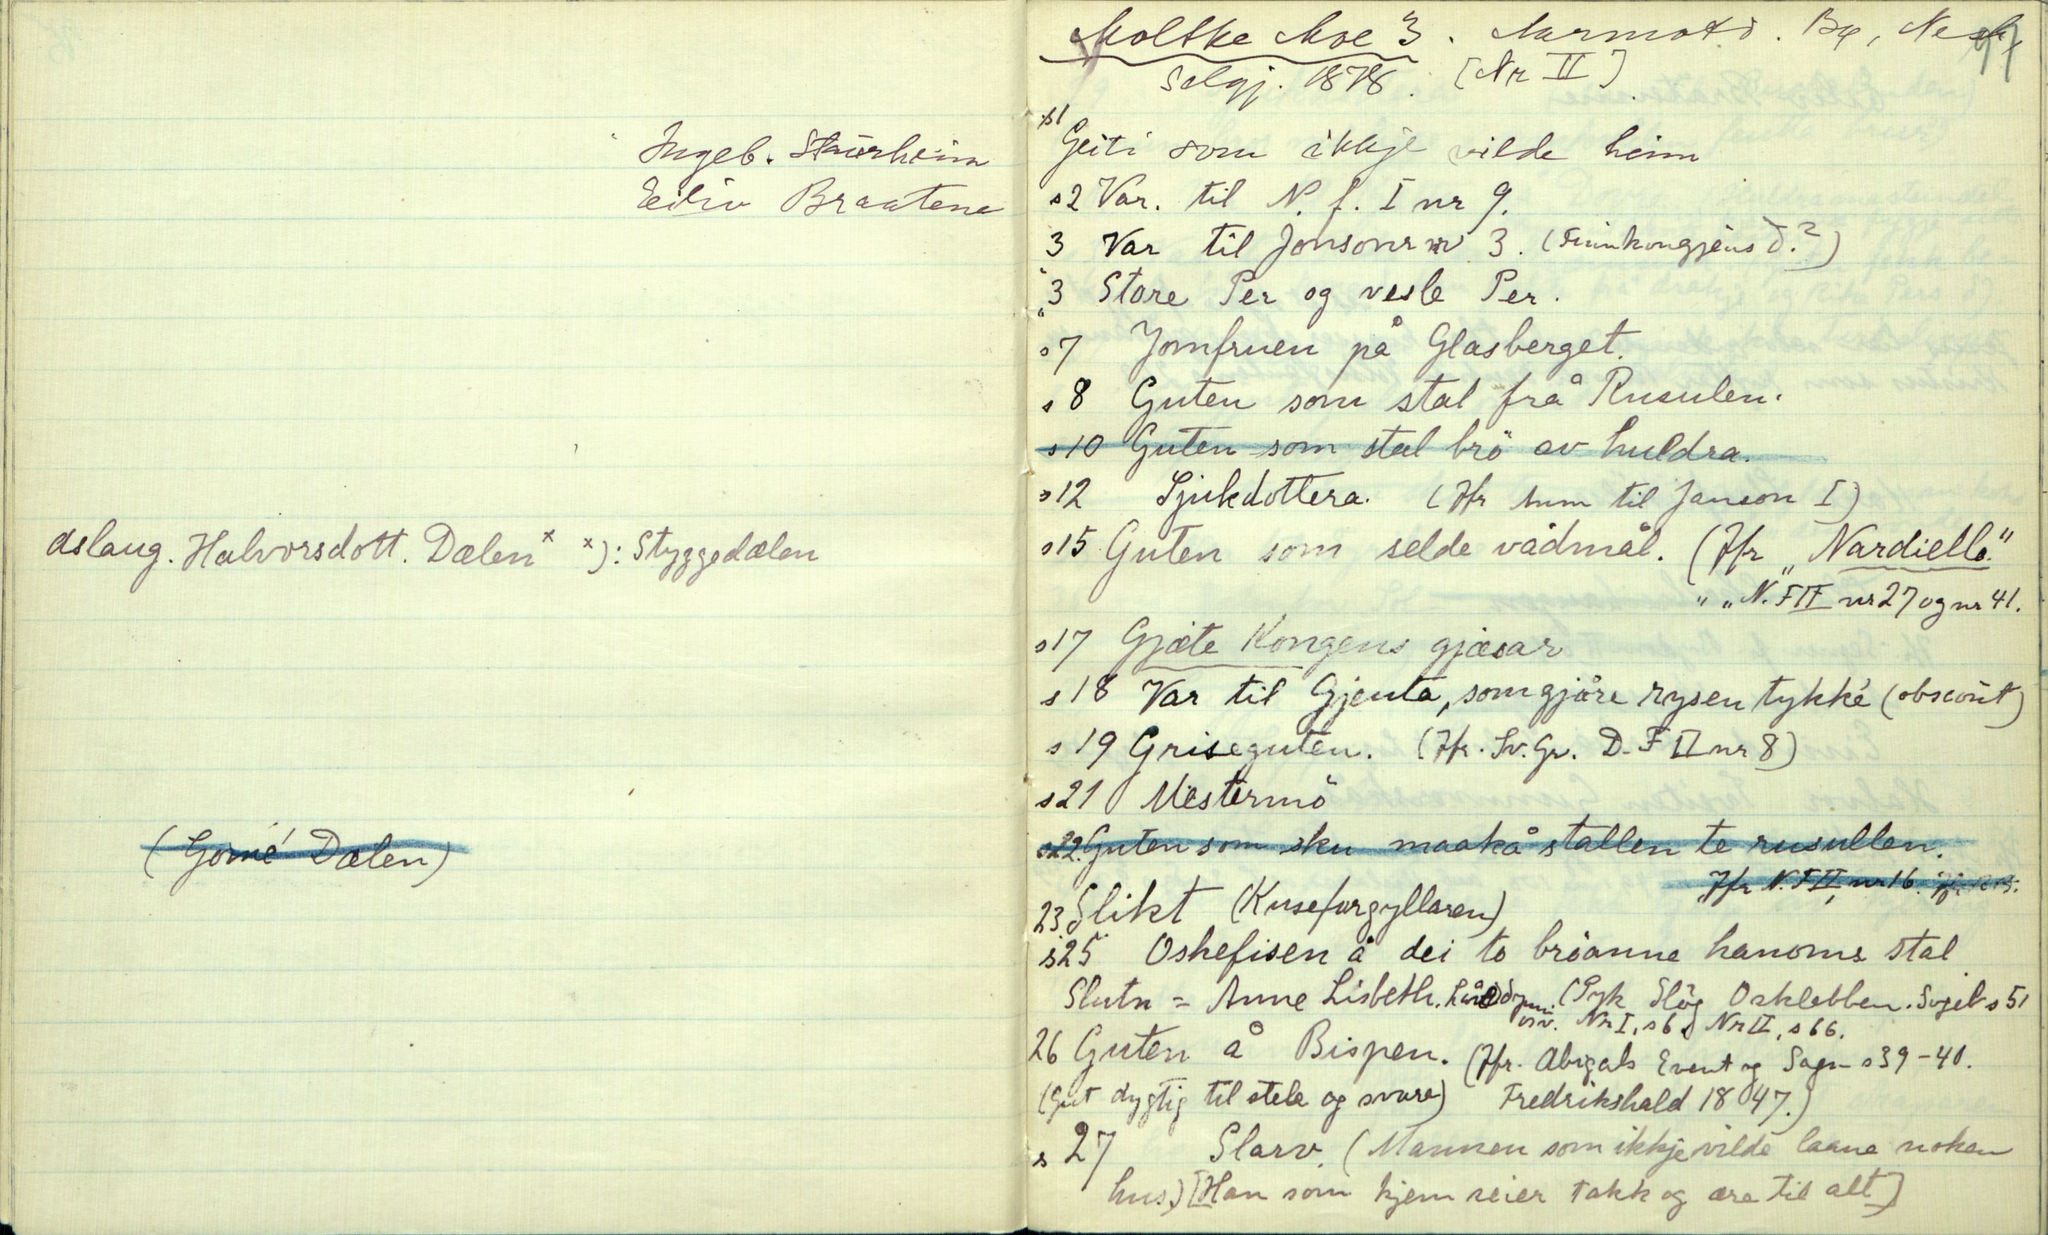 Ingeb. Staurheim
Eiliv Braatene
Aslaug. Halvorsdott. Dalen x x): Styggedalen
(Gomé Dalen)
97
Moltke Moe 3. Bø,
Selgj. 1878. [Nr II]
s1
Geiti som ikkje vilde heim
s2 Var. til N. f. I nr 9.
3 Var til Jonsons nr 3. (Finnkongjens d.?)
"3 Store Per og vesle Per.
s7 Jomfruen på Glasberget.
s 8 Guten som stal frå Rusulen.
s10 Guten som stal brö av huldra.
s12 Sjukdottera. (Jfr sum til Janson I)
s15 Guten som selde vådmål. (Jfr „Nardiello."
" „N. F II nr 27 og nr 41.
s17 Gjæte Kongens gjæsar
s 18 Var til Gjenta, som gjåre rysen tykké (obscönt)
s 19 Griseguten. (Jfr. Sv. Gr. D. F II nr 8)
s21 Mestermö
s22. Guten som sku maakå stallen te rusullen.
Jfr N. F II, nr 16.
23 Slikt (Kuseforgyllaren)
s25 Oskefisen å dei to bröanne hanoms stal
Slutn = Anne Lisbeth. (Pyk Slög Osklabben. s 51
osv. Nr I, s 6 Nr II, s 66.
26 Guten å Bispen. (Jfr. Abigals Event og Sagn s 39-40.
(Gut dygtig til stela og svare) Fredrikshald 1847.)
s 27 Slarv. (Mannen som ikkje vilde laane noken
hus.) [Han som kjem seier takk og æra til alt]